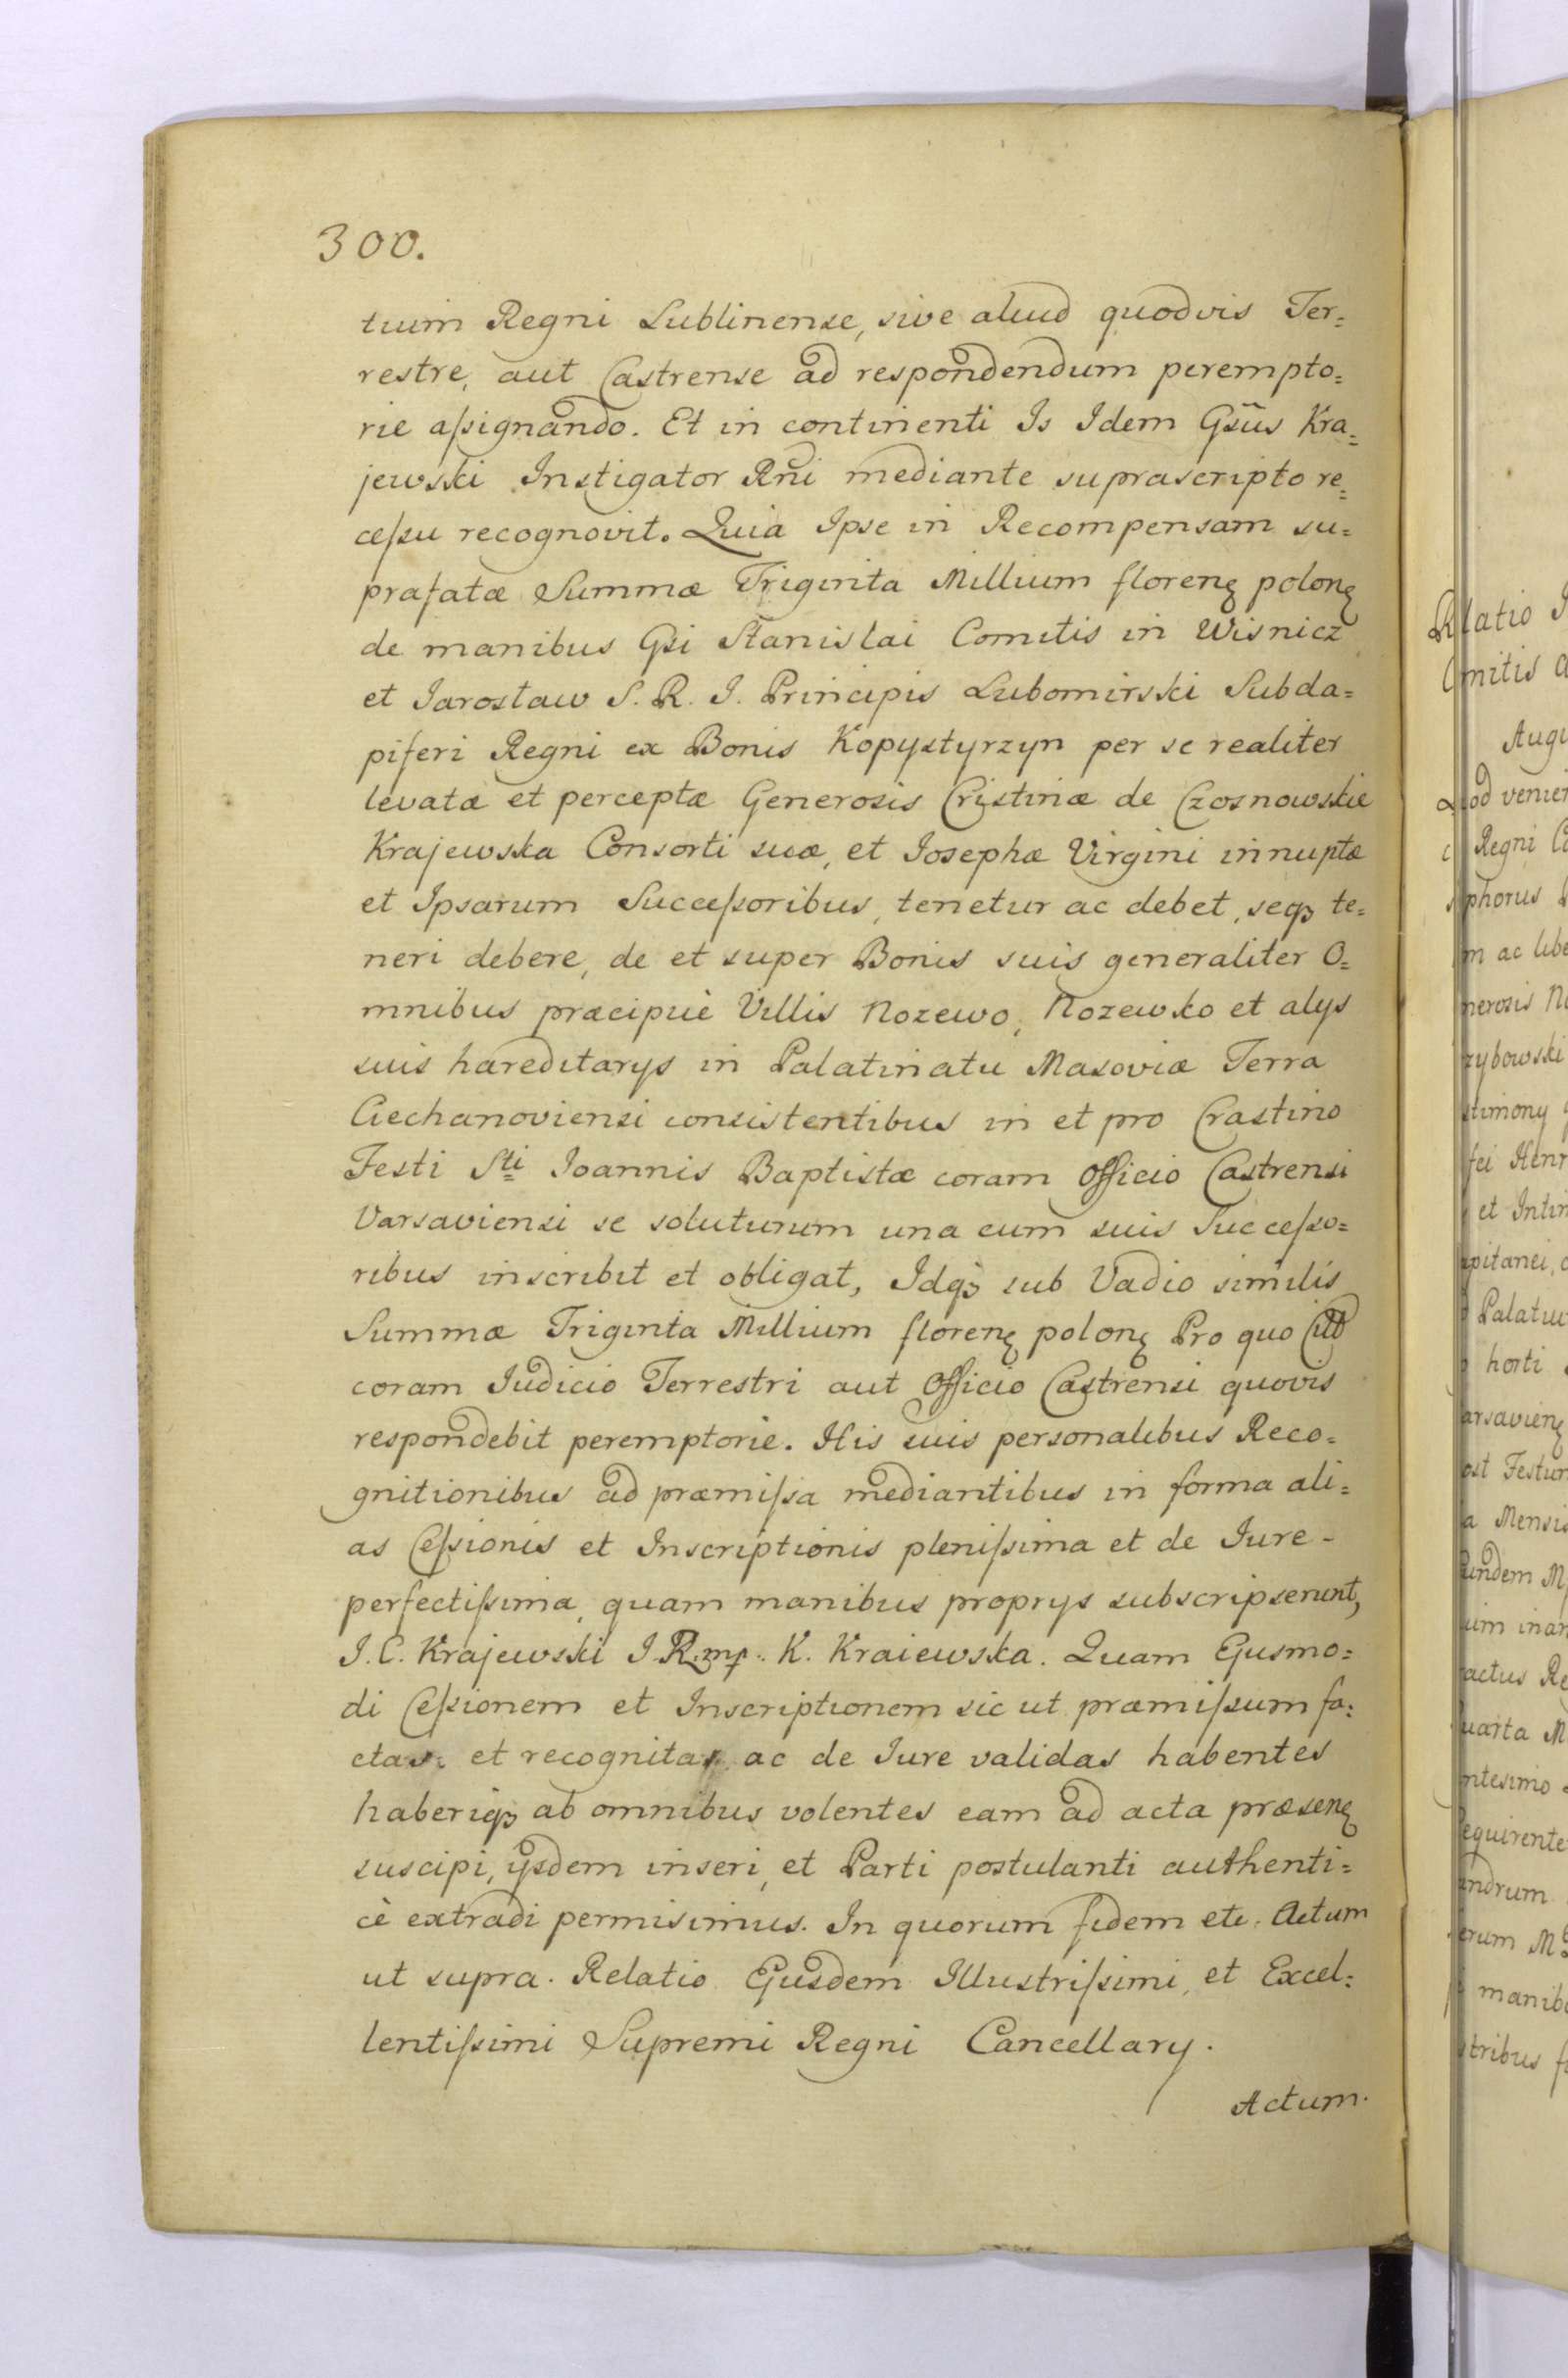 300.
tuum Regni Lublinense, sive aliud quodvis Ter=
restre, aut Castrense ad respondendum perempto=
rie aſsignando. Et in continenti Is Idem Gsūs Kra=
jewski Instigator Rñi mediante suprascripto re=
ceſsu recognovit. Quia Ipse in Recompensam su=
prafatæ Summæ Triginta Millium florenꝫ polonꝫ
de manibus Gsi Stanislai Comitis in Wisnicz
et Iarosław S. R. I. Principis Lubomirski Subda=
piferi Regni ex Bonis Kopystyrzyn per se realiter
levatæ et perceptæ Generosis Cristinæ de Czosnowskie
Krajewska Consorti suæ, et Josephæ Virgini innuptæ
et Ipsarum Succeſsoribus, tenetur ac debet, seqꝫ te=
neri debere, de et super Bonis suis generaliter O=
mnibus præcipuè Villis Nozewo, Nozewko et alys
suis hæreditarys in Palatinatu Masoviæ Terra
Ciechanoviensi consistentibus in et pro Crastino
Festi Sti Joannis Baptistæ coram Officio Castrensi
Varsaviensi se soluturum una cum suis Succeſso=
ribus inscribit et obligat, Idqꝫ sub Vadio similis
Summæ Triginta Millium florenꝫ polonꝫ Pro quo Citt
coram Iudicio Terrestri aut Officio Castrensi quovis
respondebit peremptorie. His suis personalibus Reco=
gnitionibus ad præmiſsa mediantibus in forma ali=
as Ceſsionis et Inscriptionis pleniſsima et de Iure -
perfectiſsima, quam manibus proprys subscripserunt,
J. C. Krajewski J. R. mp. K. Kraiewska. Quam Ejusmo=
di Ceſsionem et Inscriptionem sic ut præmiſsum fa=
ctas et recognitas ac de Iure validas habentes
haberiqꝫ ab omnibus volentes eam ad acta præsenꝫ
suscipi, ysdem inseri, et Parti postulanti authenti=
cè extradi permisimus. In quorum fidem etc. Actum
ut supra. Relatio Ejusdem Illustriſsimi, et Excel=
lentiſsimi Supremi Regni Cancellary.
Actum.